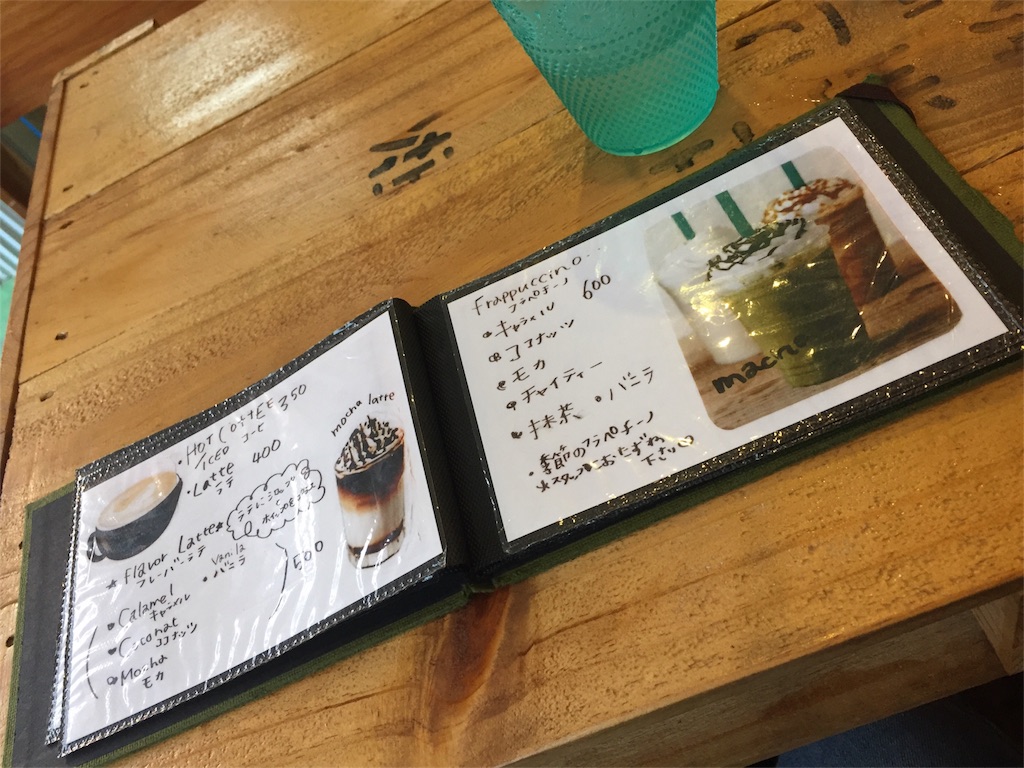 HOT COFFEE 350
/ICED コーヒー
Latte 400
ラテ
★Flavor Latte★
フレーバーラテ
ラテにシロップ
ホイップ
Vanila
バニラ
Calamel
キャラメル
500
Coconat
ココナッツ
Mocha
モカ
mocha latte
Frappuccino.
フラペチーノ 600
キャラメル
ココナッツ
モカ
チャイティー
抹茶 バニラ
季節のフラペチーノ
★スタッフにおたずね
下さい♡
macho